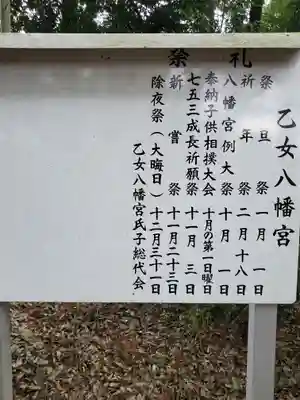 乙女八幡宮
祭礼
祭旦祭 一月一日
祈年祭 二月十八日
八幡宮例大祭 十月一日
奉納子供相撲大会 十月の第一日曜日
七五三成長祈願祭 十一月三日
新嘗祭 十一月二十三日
除夜祭(大晦日) 十二月三十一日
乙女八幡宮氏子総代会